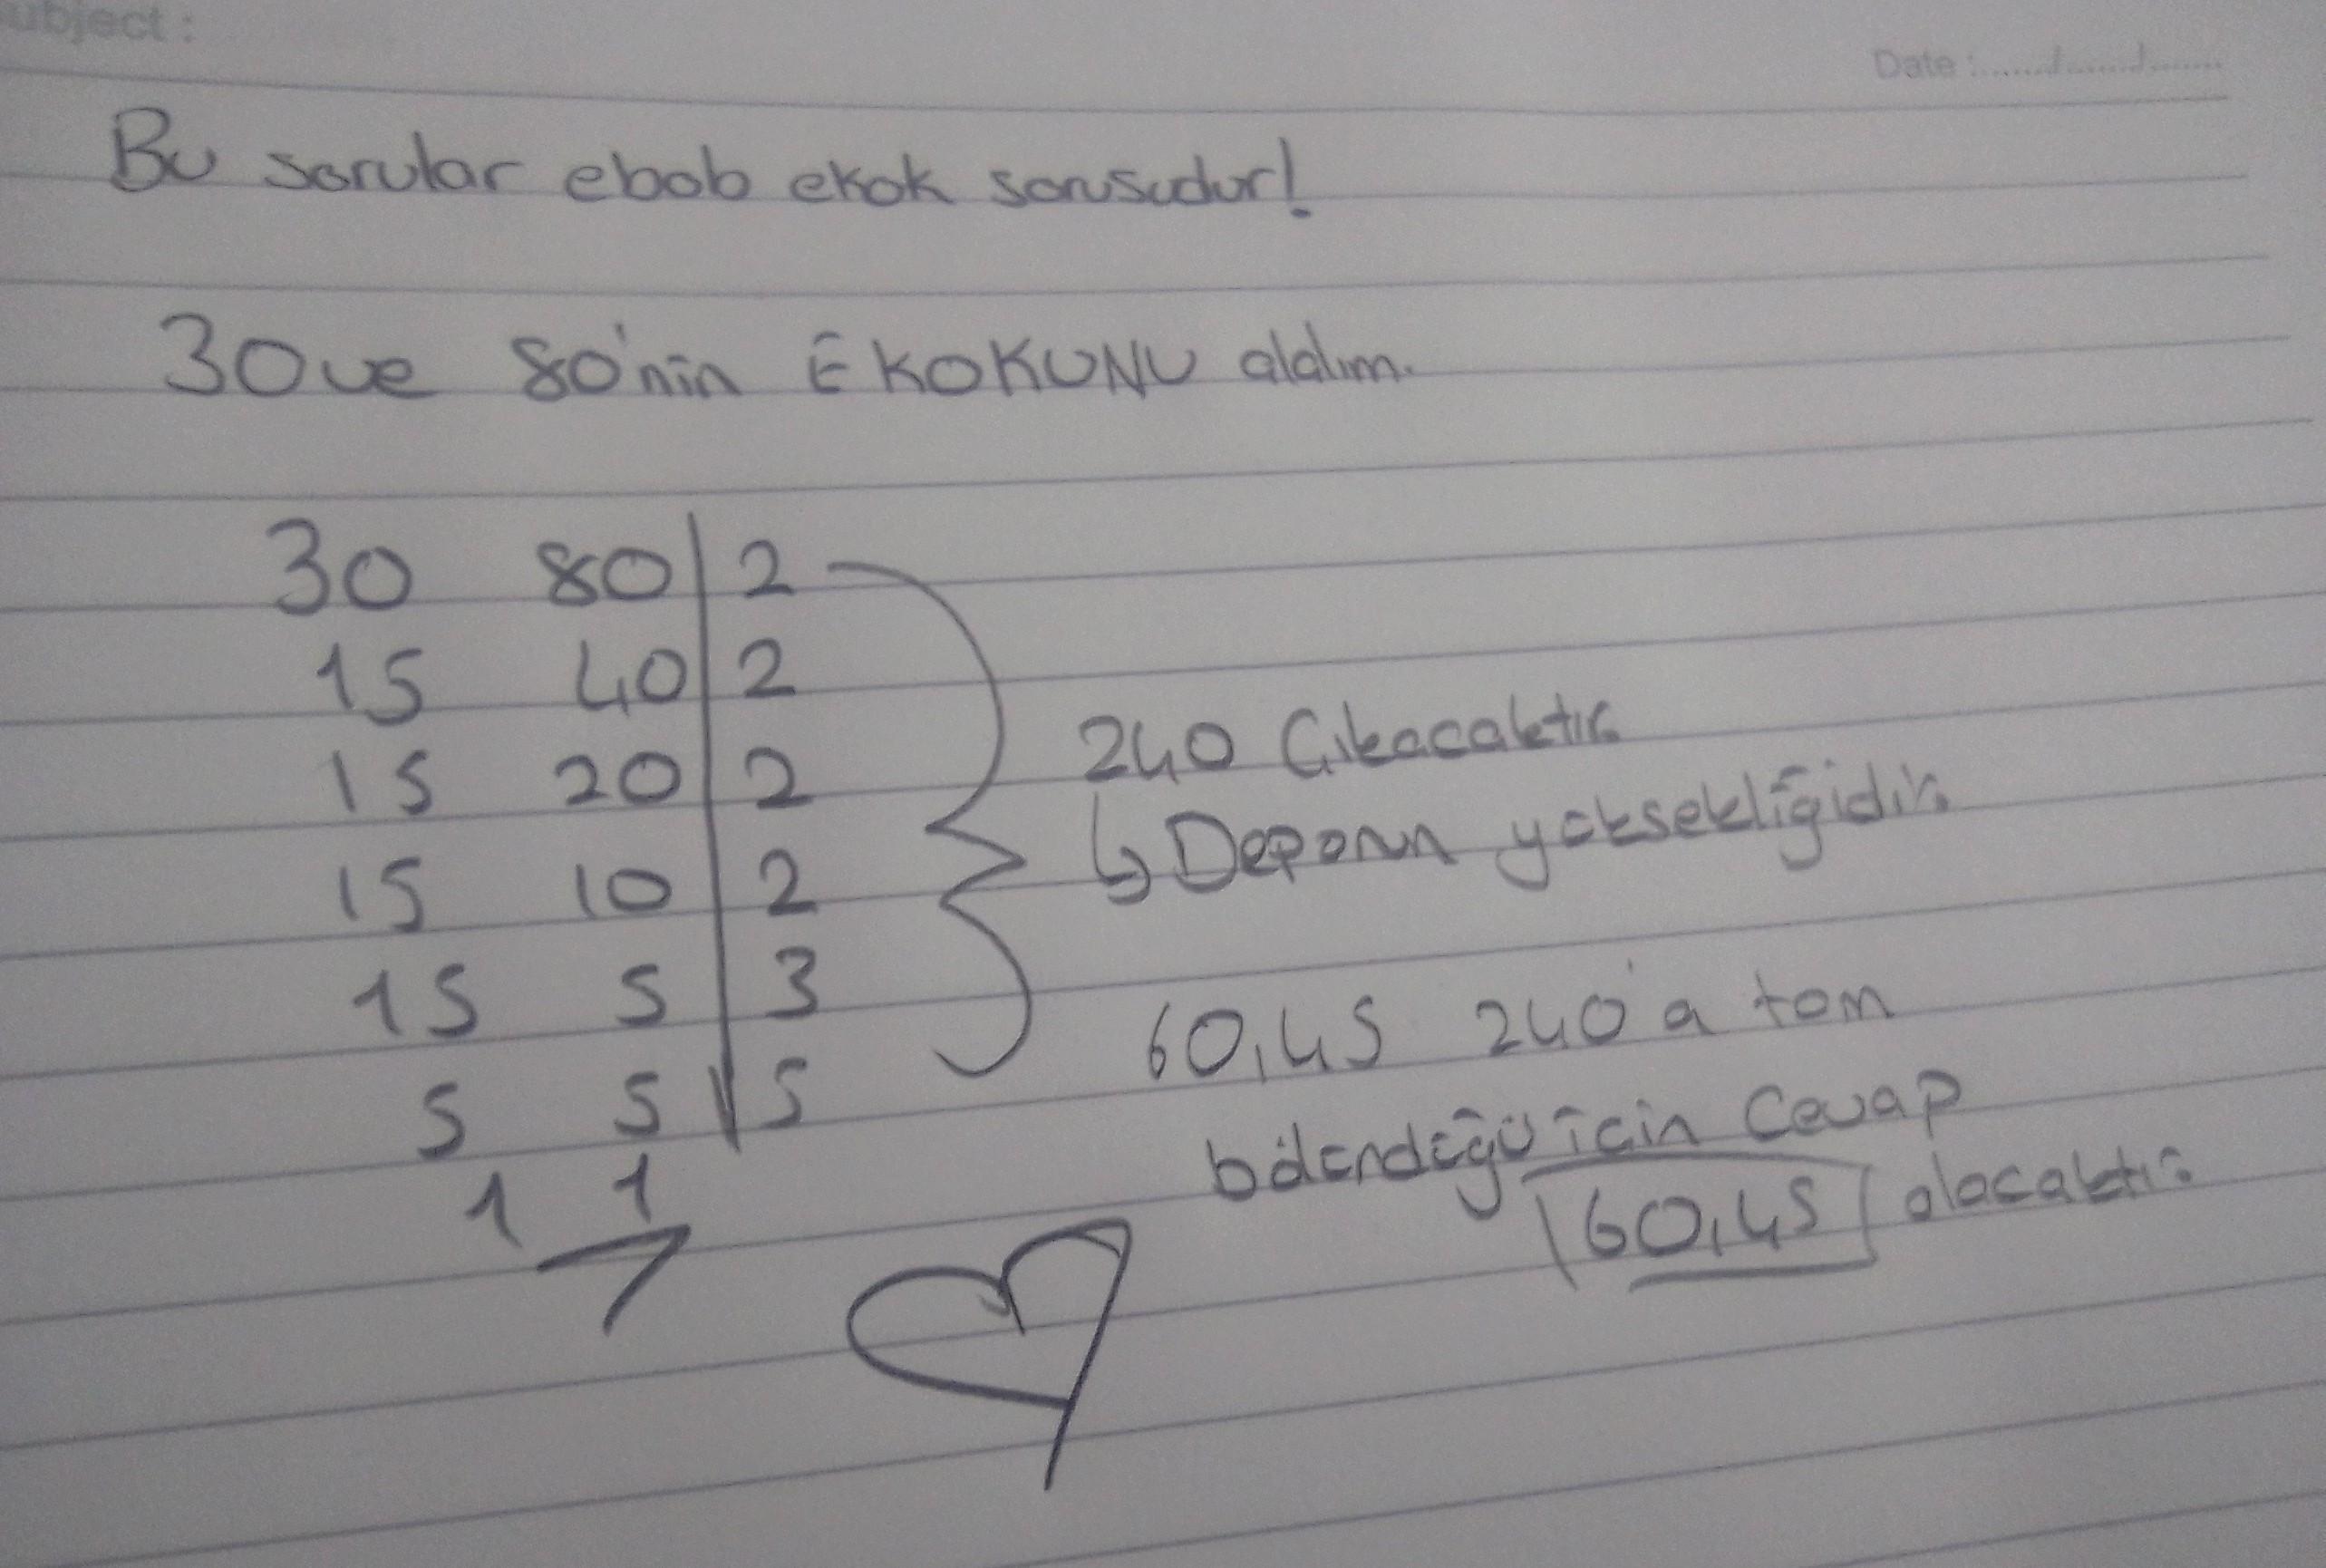 ubject :
Date :....../....../......
Bu sorular ebob ekok sorusudur!
30 ve 80'nin EKOKUNU aldım.
30 80 | 2
15 40 | 2
15 20 | 2
15 10 | 2
15 5 | 3
5 5 | 5
1 1
240 Çıkacaktır.
↳ Deponun yüksekliğidir.
60,45 240'a tam
bölündüğü için Cevap
60,45 olacaktır.